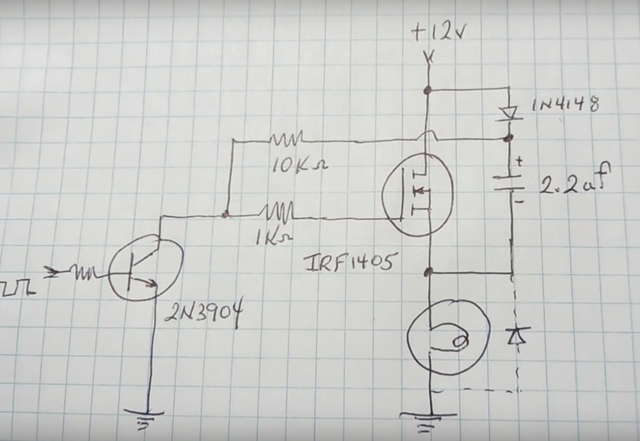 +12V
1N4148
10KΩ
+
2.2uf
-
1KΩ
IRF1405
2N3904